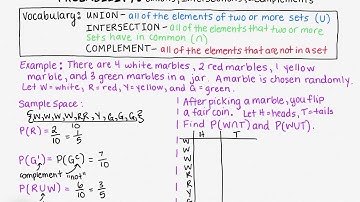 Vocabulary: UNION - all of the elements of two or more sets (U)
INTERSECTION - all of the elements that two or more
sets have in common (∩)
COMPLEMENT - all of the elements that are not in a set
Example: There are 4 white marbles, 2 red marbles, 1 yellow
marble, and 3 green marbles in a jar. A marble is chosen randomly.
Let W = white, R = red, Y = yellow, and G = green.
Sample Space:
{W, W, W, W, R, R, Y, G, G, G}
P(R) = 2/10 = 1/5
P(G') = P(Gᶜ) = 7/10
complement "not"
P(R∪W) = 6/10 = 3/5
After picking a marble, you flip
a fair coin. Let H = heads, T = tails
Find P(W∩T) and P(W∪T).
H T
W
W
W
W
R
R
Y